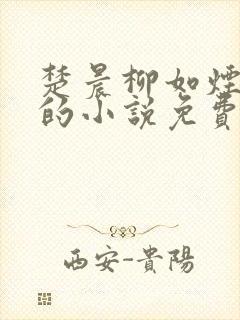 楚晨柳如煙
的小說免費
西安-貴陽